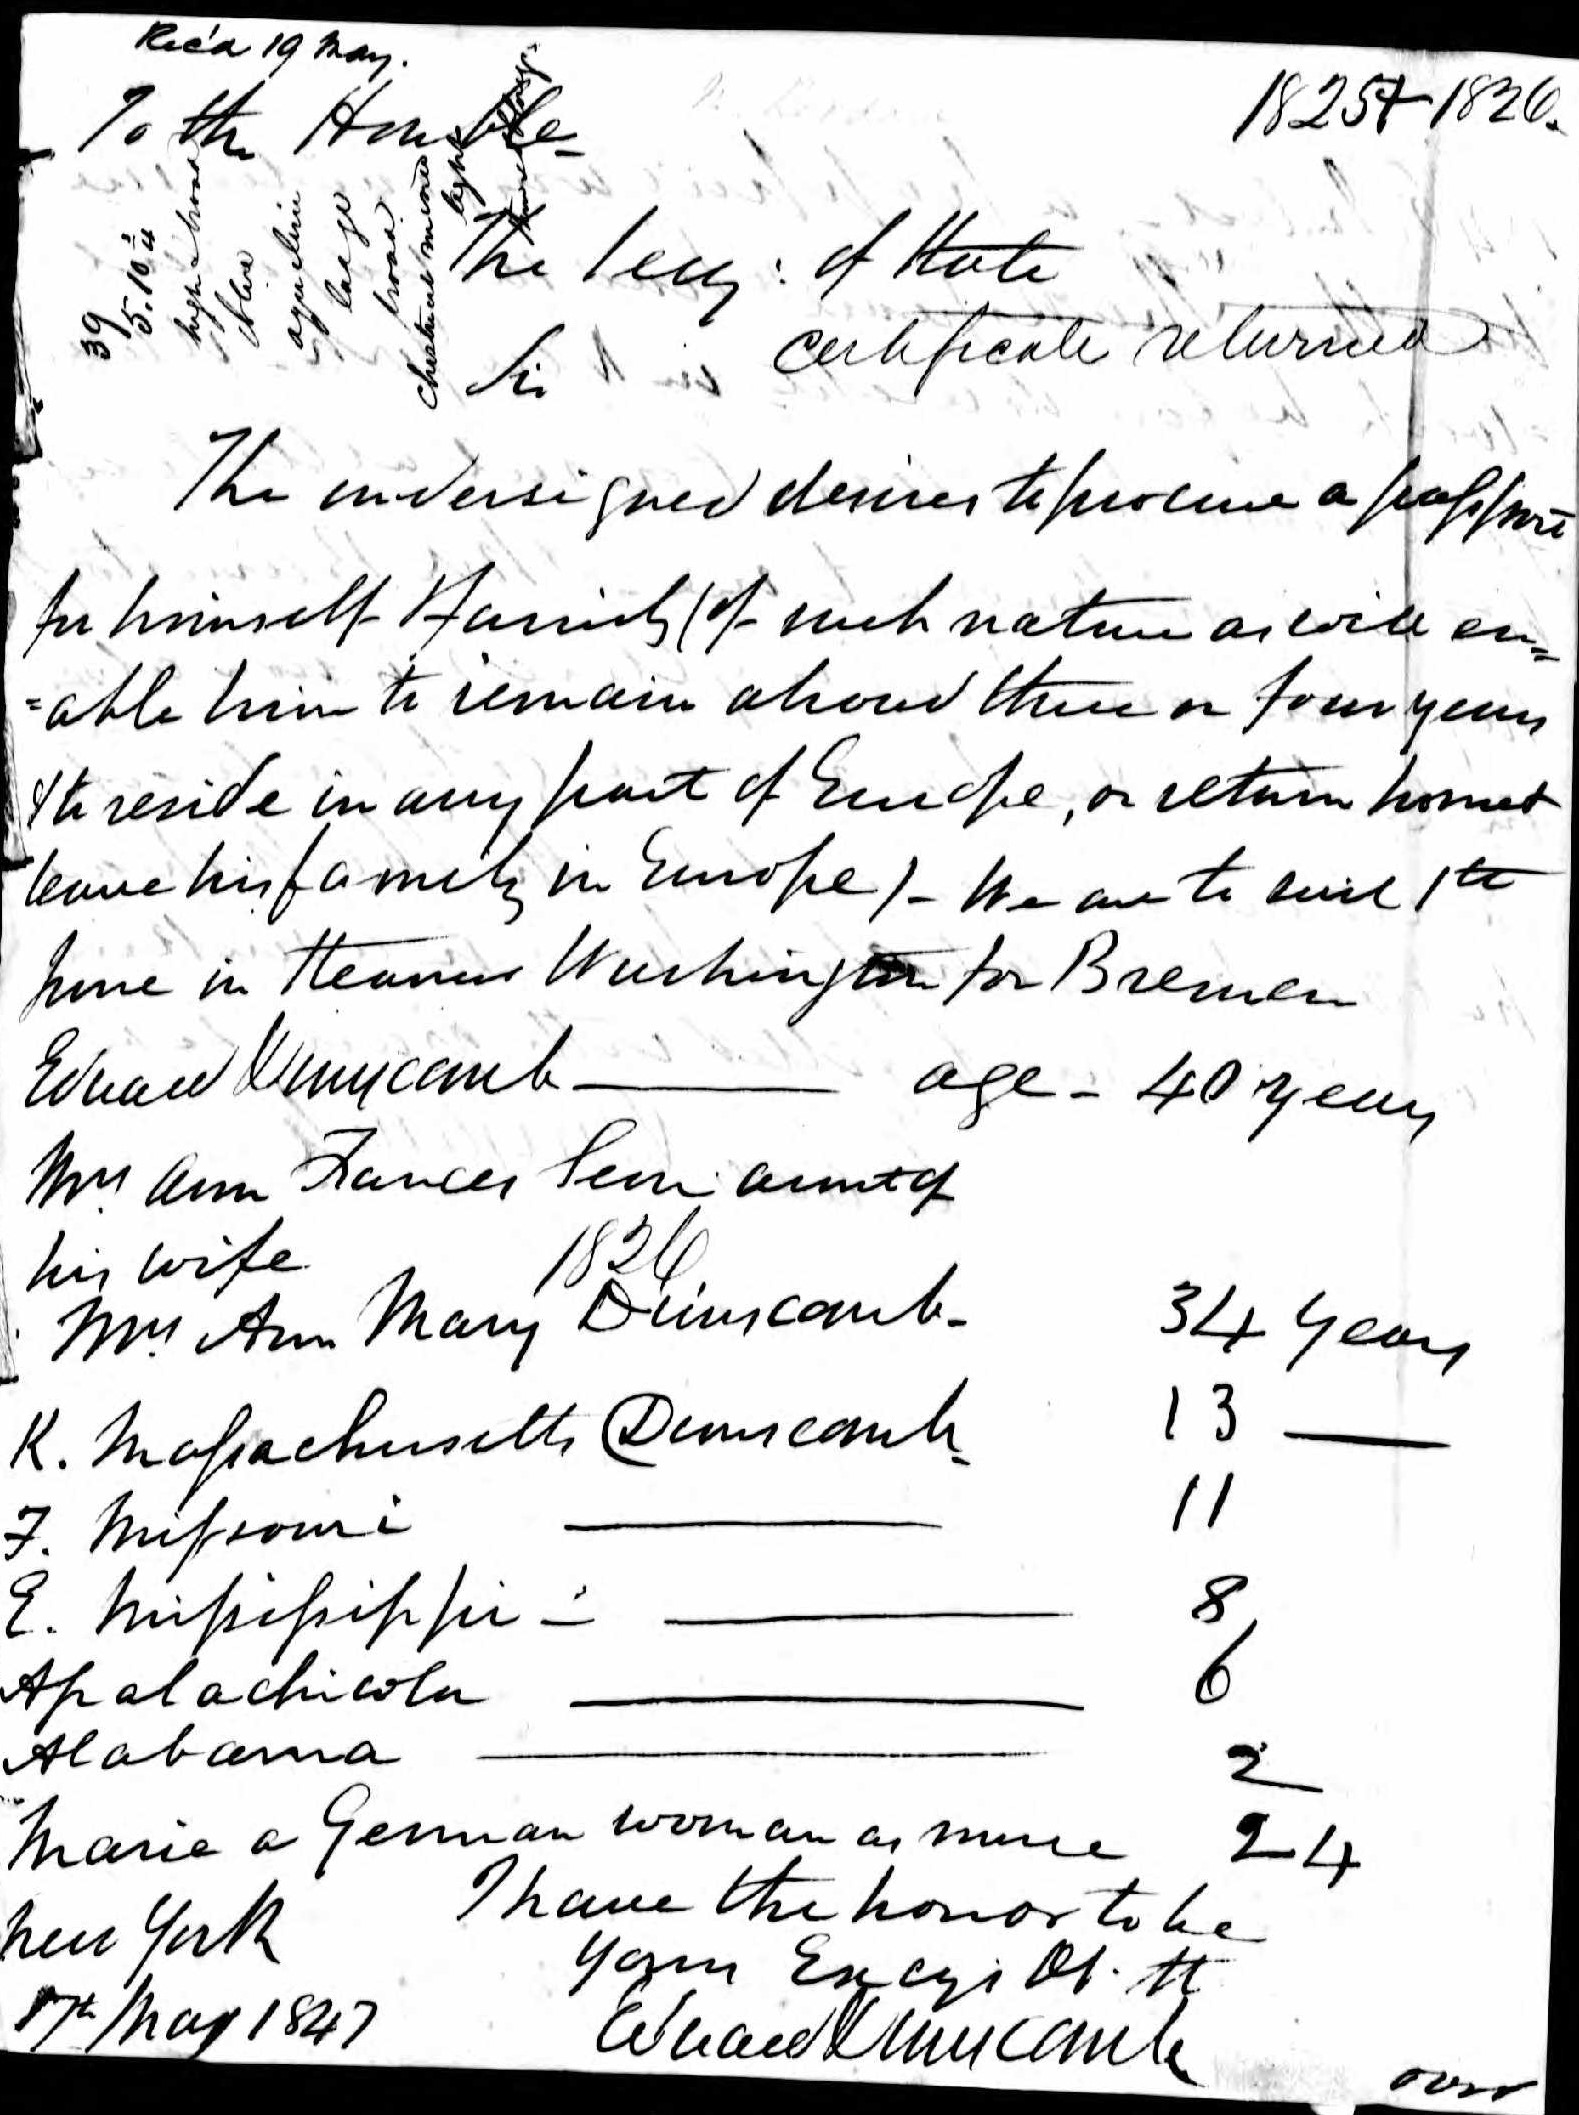 Rec'd 19 May.
1825 + 1826.
To the Honble-
The Secy: of State
certificate returned
Sir
39
5.10 3/4
high & broad
olive
aquiline
large
broad
chestnut
light
The undersigned desires to procure a passport
for himself & family (of such nature as will en=
=able him to remain abroad three or four years
& to reside in any part of Europe, or return home &
leave his family in Europe) - We are to sail 1st
June in Steamer Washington for Bremen
Edward Dunscomb age - 40 years
Mrs Ann Frances aunt of
his wife 1826
Mrs Ann Mary Dunscomb - 34 years
K. Massachusetts Dunscomb 13
F. Missouri 11
E. Mississippi - 8
Apalachicola 6
Alabama 2
Maria a German woman as nurse 24
New York I have the honor to be
Your Excys Ob. St
17th May 1847 Edward Dunscomb
over